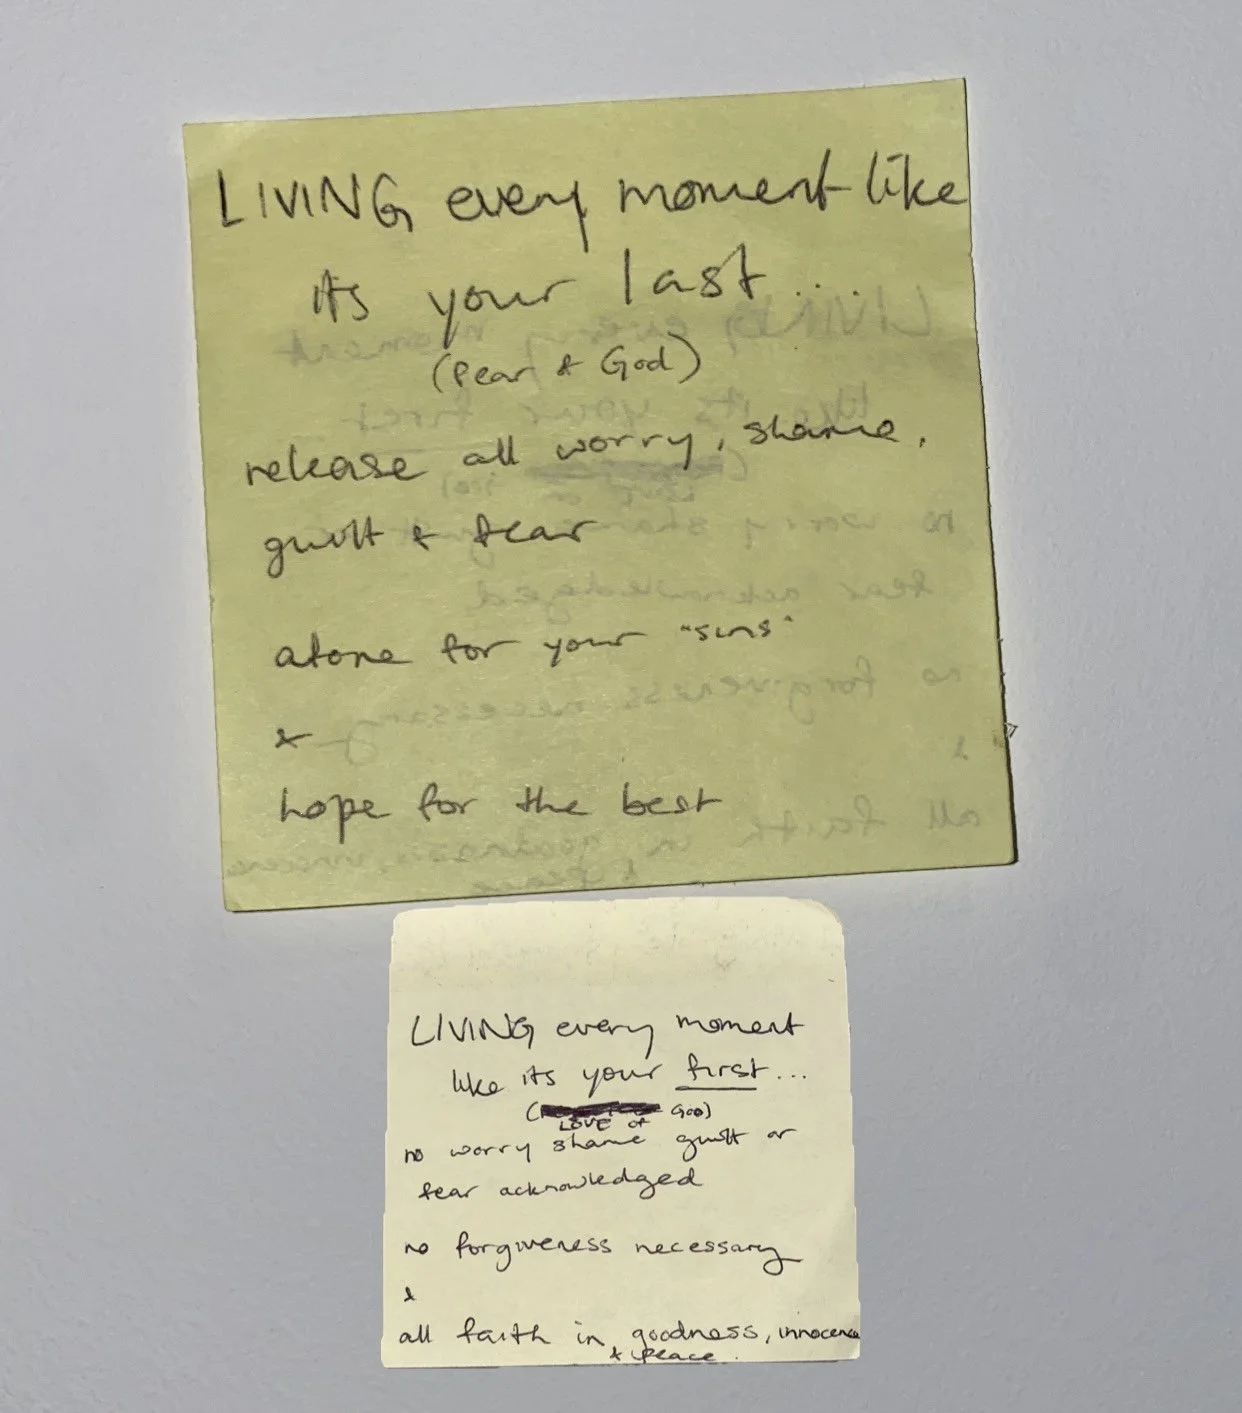 LIVING every moment like
its your last...
(fear of God)
release all worry, shame,
guilt & fear
atone for your "sins"
&
hope for the best
LIVING every moment
like its your first...
(God)
LOVE of
no worry shame guilt or
fear acknowledged
no forgiveness necessary
&
all faith in goodness, innocence
& peace.